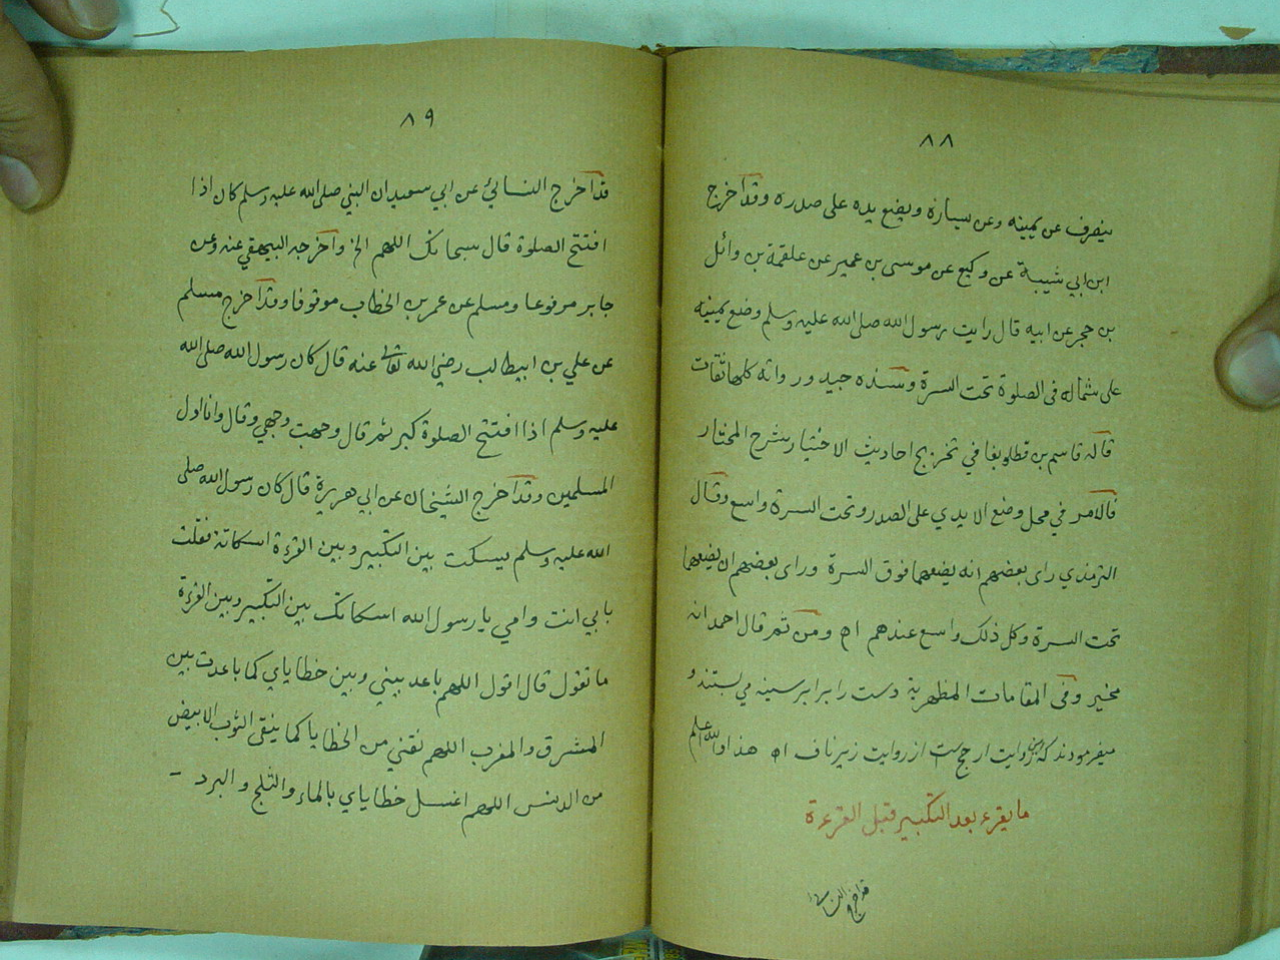 ٨٨
ينصرف عن يمينه وعن يساره ويضع يده على صدره وقد اخرج
ابن ابي شيبة عن وكيع عن موسى بن عمير عن علقمة بن وائل
بن حجر عن ابيه قال رايت رسول الله صلى الله عليه وسلم وضع يمينه
على شماله فى الصلوة تحت السرة وسنده جيد ورواته كلها ثقات
قاله قاسم بن قطلوبغا في تخريج احاديث الاختيار شرح المختار
فالامر في محل وضع الايدي على الصدر وتحت السرة واسع وقال
الترمذي راى بعضهم انه يضعهما فوق السرة وراى بعضهم ان يضعهما
تحت السرة وكل ذلك واسع عندهم اه ومن ثم قال احمد انه
مخير وفى المقامات المظهرية دست را برابر سينه مي بستند و
ميفرمودند كه اين روايت ارجح است از روايت زير ناف اه هذا والله اعلم
ما يقرء بعد التكبير قبل القرءة
قد اخرج النسائي
٨٩
قد اخرج النسائي عن ابي سعيد ان النبي صلى الله عليه وسلم كان اذا
افتتح الصلوة قال سبحانك اللهم الخ واخرجه البيهقي عنه وعن
جابر مرفوعا ومسلم عن عمر بن الخطاب موقوفا وقد اخرج مسلم
عن علي بن ابيطالب رضي الله تعالى عنه قال كان رسول الله صلى الله
عليه وسلم اذا افتتح الصلوة كبر ثم قال وجهت وجهي وقال وانا اول
المسلمين وقد اخرج الشيخان عن ابي هريرة قال كان رسول الله صلى
الله عليه وسلم يسكت بين التكبير وبين القرءة اسكاتة فقلت
بابي انت وامي يا رسول الله اسكاتك بين التكبير وبين القرءة
ما تقول قال اقول اللهم باعد بيني وبين خطاياي كما باعدت بين
المشرق والمغرب اللهم نقني من الخطايا كما ينقى الثوب الابيض
من الدنس اللهم اغسل خطاياي بالماء والثلج والبرد -